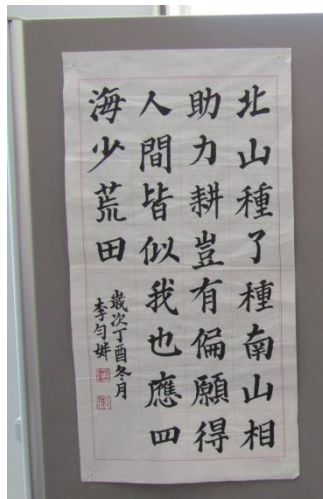 北山種了種南山相
助力耕豈有偏願得
人間皆似我也應四
海少荒田
歲次丁酉冬月
李勻姩